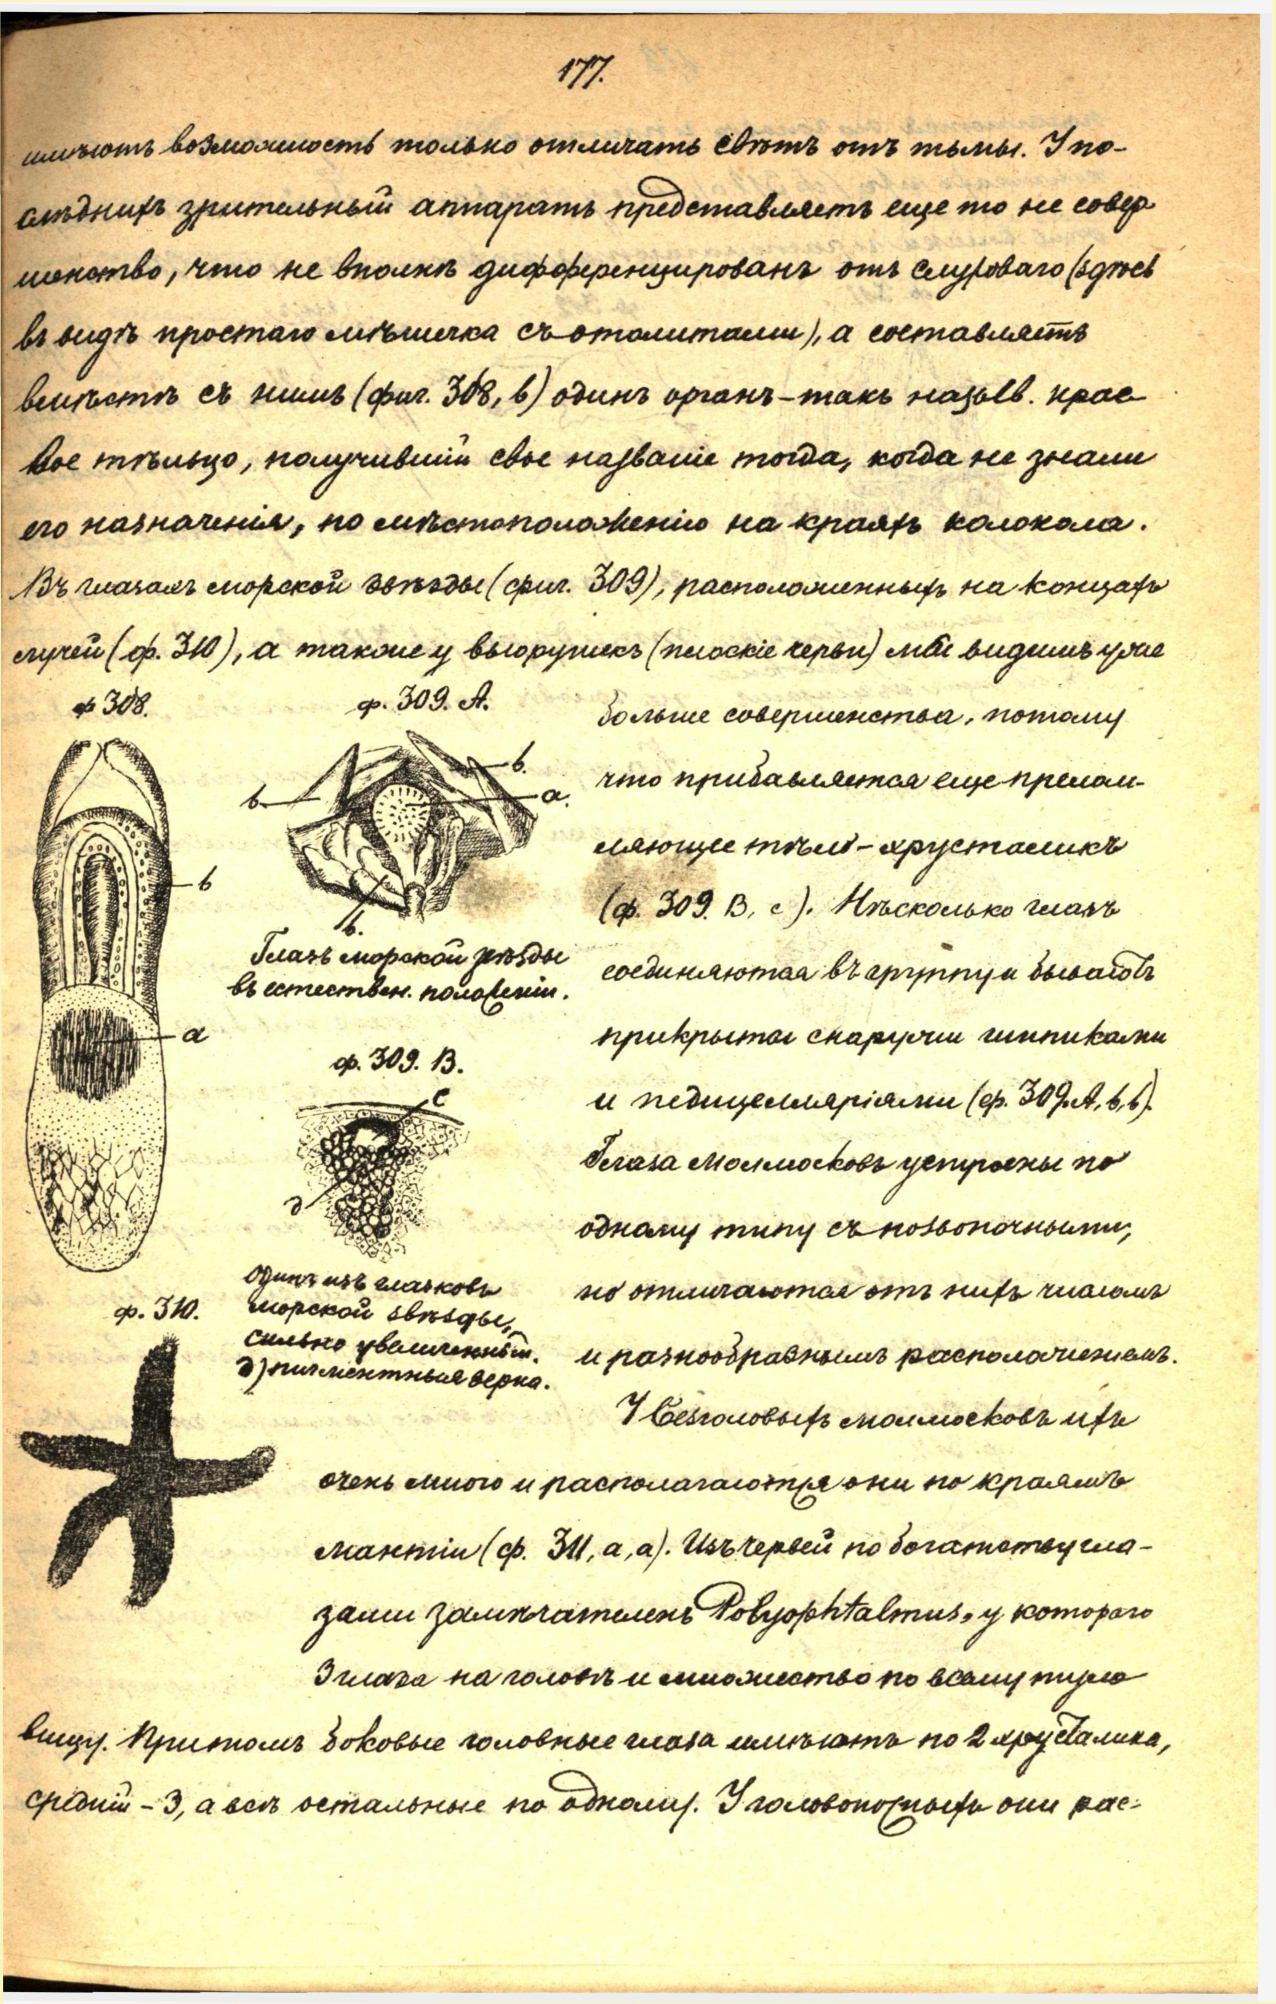 177.
имѣютъ возможность только отличать свѣтъ отъ тьмы. У по-
слѣднихъ зрительный аппаратъ представляетъ еще то не совер
шенство, что не вполнѣ дифференцированъ отъ слуховаго (здѣсь
въ видѣ простаго мѣшечка съ отолитами), а составляетъ
вмѣстѣ съ нимъ (фиг. 308, b) одинъ органъ – такъ назыв. крае
вое тѣльцо, получившій свое названіе тогда, когда не знали
его назначенія, по мѣстоположенію на краяхъ колокола.
Въ глазахъ морской звѣзды (фиг. 309), расположенныхъ на концахъ
лучей (ф. 310), а также у (плоскіе черви) мы видимъ уже
ф 308.
ф. 309. А.
больше совершенства, потому
что прибавляется еще прелом-
ляющее тѣло – хрусталикъ
(ф. 309. В, c). Нѣсколько глазъ
соединяются въ группу и бываютъ
прикрыты снаружи шипиками
и педицелляріями (ф. 309. А, b, b).
Глаза моллюсковъ устроены по
одному типу съ позвоночными,
но отличаются отъ нихъ числомъ
и разнообразнымъ расположеніемъ.
b
a
b.
b
a.
b.
Глазъ морской звѣзды
въ естествен. положеніи.
ф. 309. В.
c
д
Одинъ изъ глазковъ
морской звѣзды,
сильно увеличенный.
д) пигментныя зерна.
ф. 310.
У безголовыхъ моллюсковъ ихъ
очень много и располагаются они по краямъ
мантіи (ф. 311, а, а). Изъ червей по богатству гла-
зами замѣчателенъ Polyophtalmus, у котораго
3 глаза на головѣ и множество по всему туло
вищу. Притомъ боковые головные глаза имѣютъ по 2 хрусталика,
средній – 3, а всѣ остальные по одному. У головоногихъ они рас-